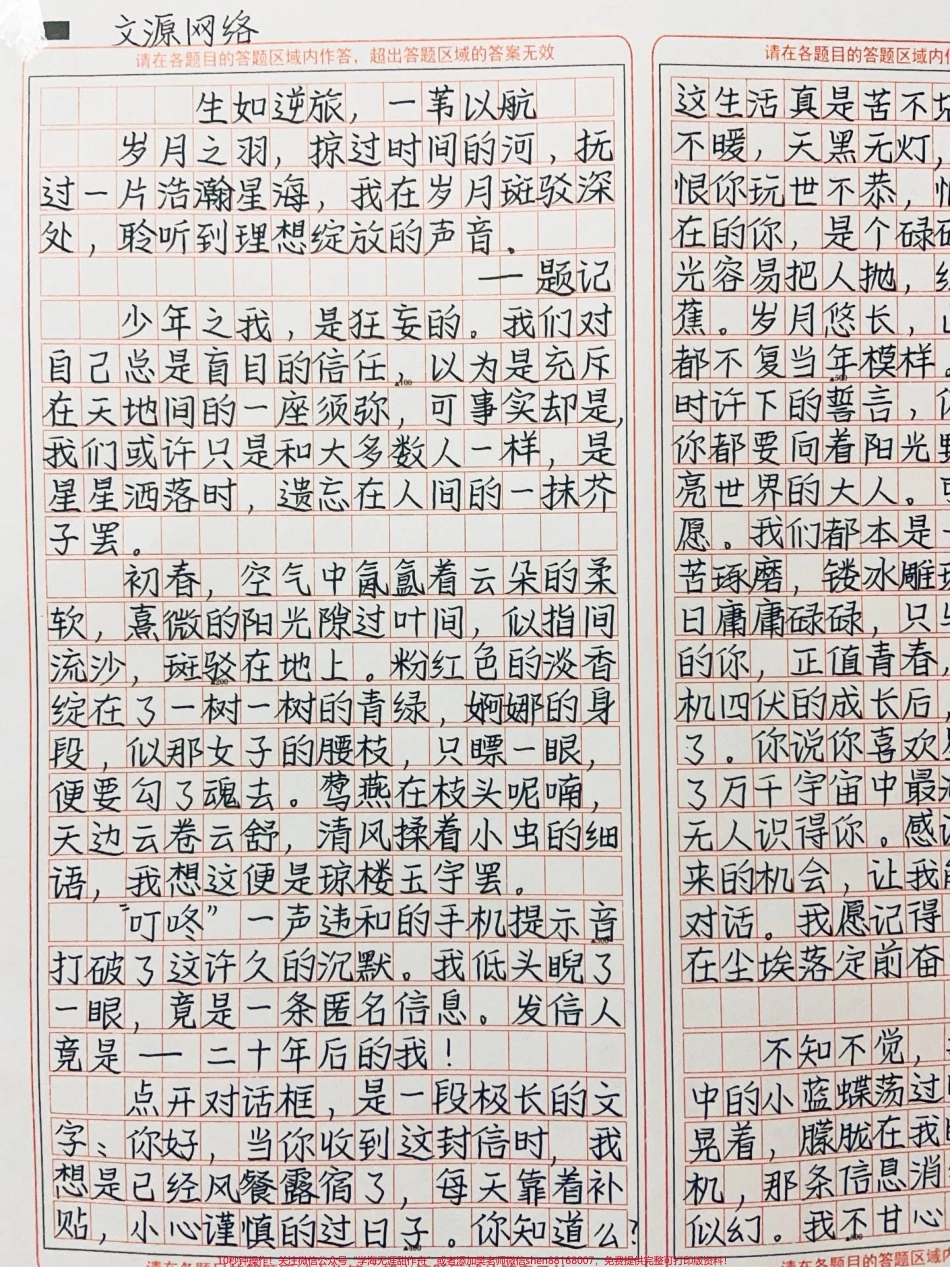 文源网络
请在各题目的答题区域内作答，超出答题区域的答案无效
生如逆旅，一苇以航
岁月之羽，掠过时间的河，抚
过一片浩瀚星海，我在岁月斑驳深
处，聆听到理想绽放的声音．
一题记
少年之我，是狂妄的。我们对
自己总是盲目的信任，以为是充斥
▲100
在天地间的一座须弥，可事实却是，
我们或许只是和大多数人一样，是
星星洒落时，遗忘在人间的一抹芥
子罢。
初春，空气中氤氲着云朵的柔
软，熹微的阳光隙过叶间，似指间
流沙，斑驳在地上。粉红色的淡香
▲200
绽在了一树一树的青绿，婀娜的身
段，似那女子的腰枝，只瞟一眼，
便要勾了魂去。莺燕在枝头呢喃，
天边云卷云舒，清风揉着小虫的细
语，我想这便是琼楼玉宇罢。
“叮咚”一声违和的手机提示音
▲300
打破了这许久的沉默。我低头睨了
一眼，竟是一条匿名信息。发信人
竟是一二十年后的我！
点开对话框，是一段极长的文
字：你好，当你收到这封信时，我
想是已经风餐露宿了，每天靠着补
贴，小心谨慎的过日子。你知道么？
▲400
请在各题目的答题区域内作
这生活真是苦不
不暖，天黑无灯，
恨你玩世不恭，
在的你，是个碌
光容易把人抛，
蕉。岁月悠长，
都不复当年模样。
▲500
时许下的誓言，
你都要向着阳光
亮世界的大人。
愿。我们都本是
苦琢磨，镂冰雕
日庸庸碌碌，只
的你，正值青春
机四伏的成长后，
了。你说你喜欢
了万千宇宙中最
无人识得你。感
来的机会，让我
对话。我愿记得
在尘埃落定前奋
不知不觉，
中的小蓝蝶荡过
晃着，朦胧在我
机，那条信息消
似幻。我不甘心
▲800